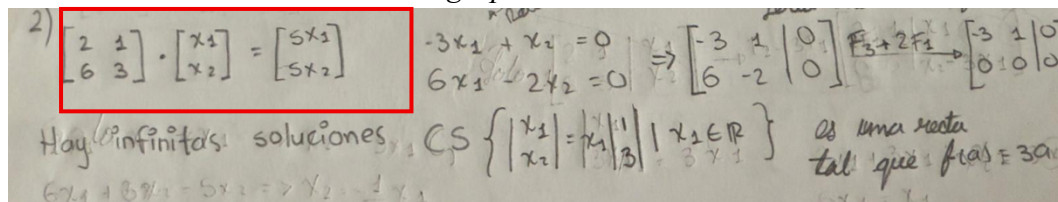 2) [2 1; 6 3] · [x1; x2] = [5x1; 5x2]   -3x1 + x2 = 0   6x1 - 2x2 = 0 ⇒ [-3 1 | 0; 6 -2 | 0] F2+2F1 → [-3 1 | 0; 0 0 | 0]
Hay infinitas soluciones, CS { |x1; x2| = |x1| |1; 3| | x1 ∈ ℝ } es una recta
tal que f(a) = 3a